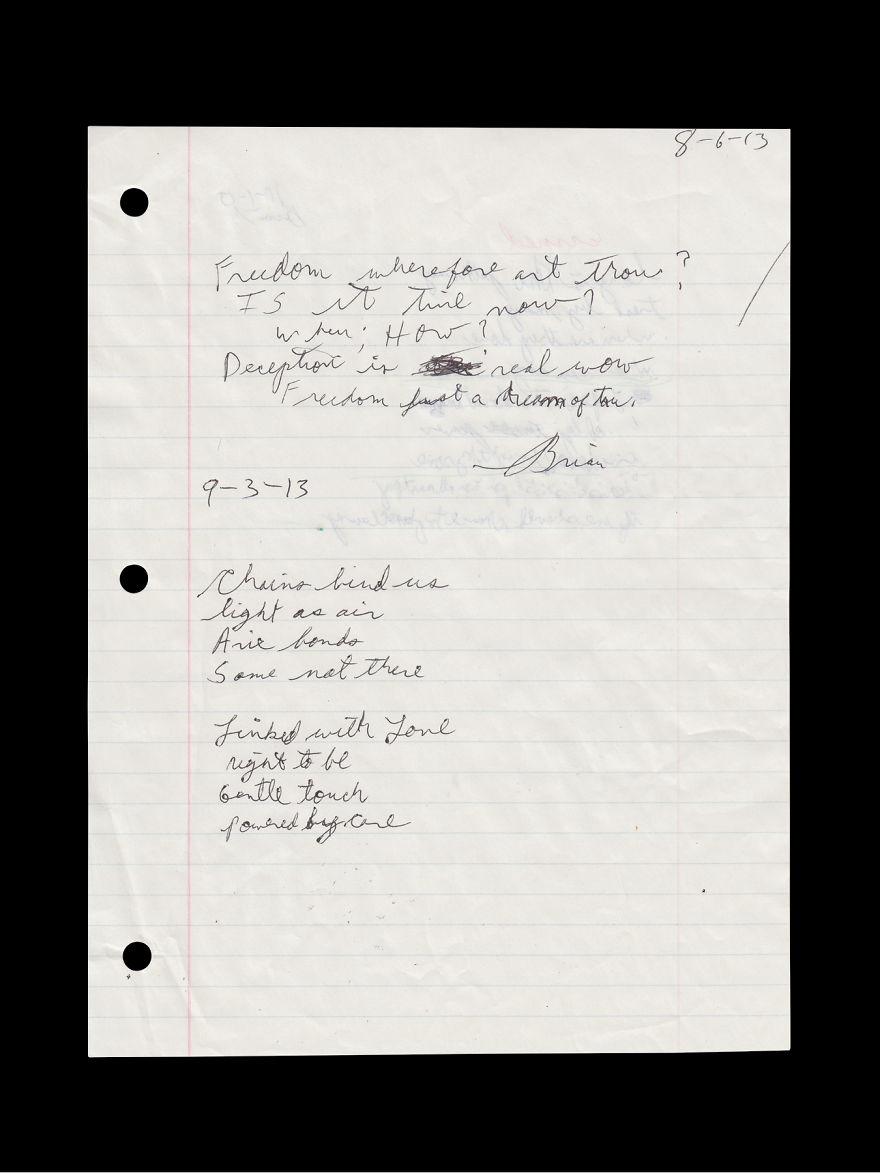 8-6-13
Freedom wherefore art Trou?
IS it time now?
when; HOW?
Deception is real wow
Freedom just a dream of
Brian
9-3-13
Chains bind us
light as air
Are bonds
Some not there
Linked with Love
right to be
Gentle touch
powered by care